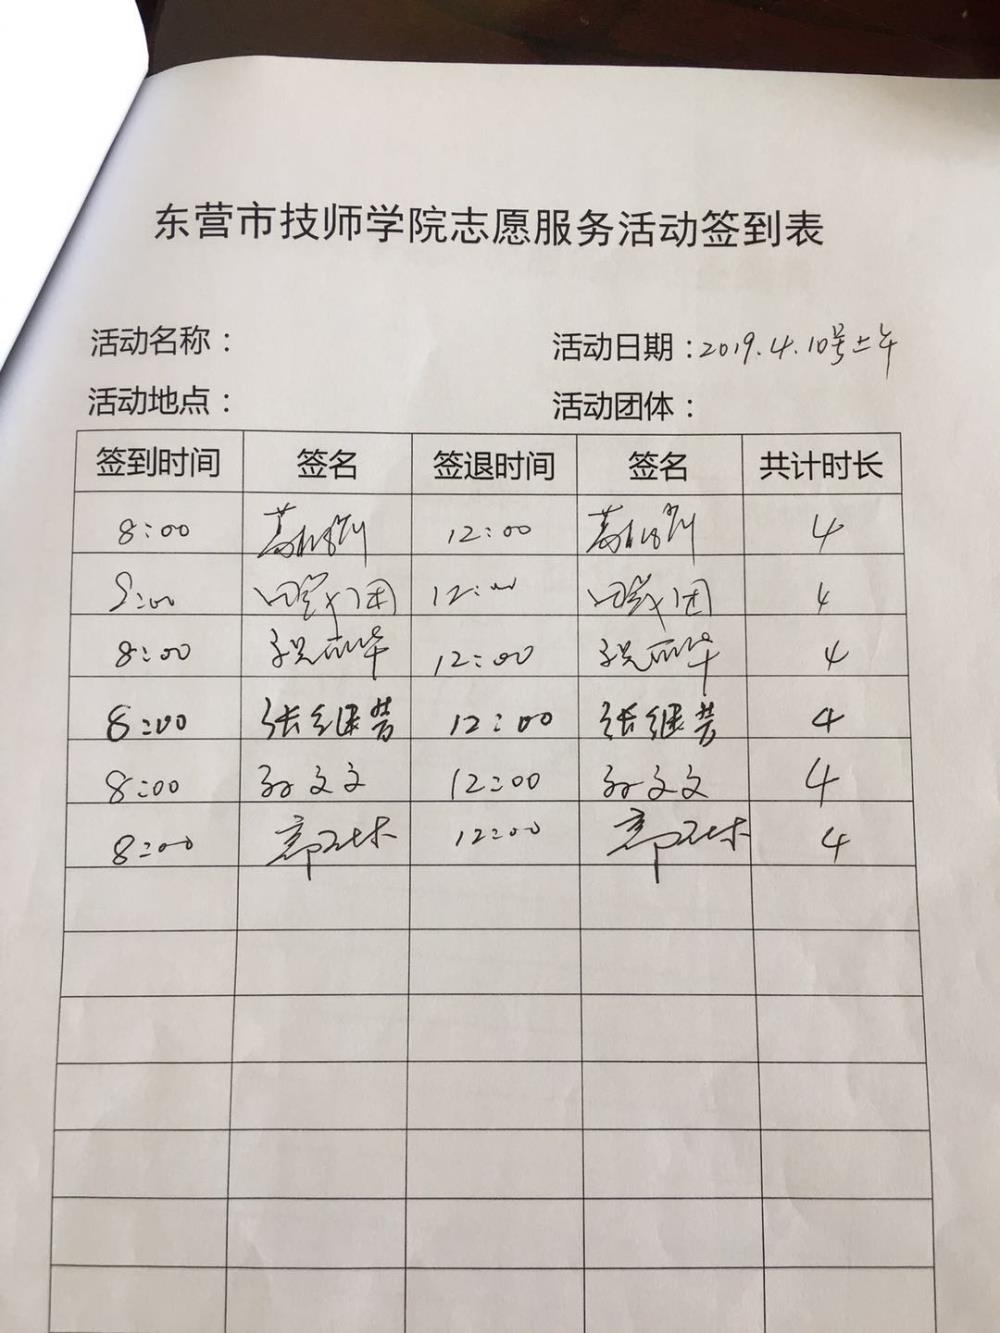 东营市技师学院志愿服务活动签到表
活动名称： 活动日期：2019.4.10号上午
活动地点： 活动团体：
签到时间 签名 签退时间 签名 共计时长
8:00 12:00 4
8:00 12:00 4
8:00 祝丽华 12:00 祝丽华 4
8:00 张继芳 12:00 张继芳 4
8:00 孙文文 12:00 孙文文 4
8:00 12:00 4